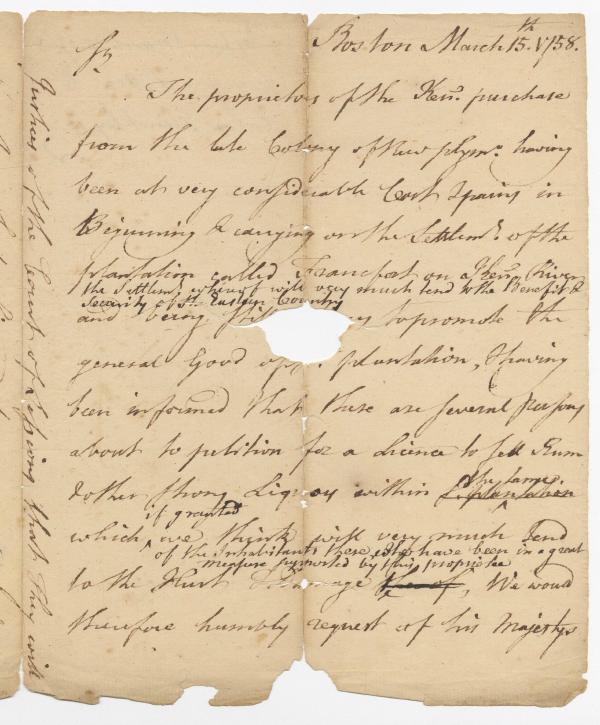 Boston March 15.th 1758.
Sr.
The proprietors of the Ken.o purchase
from the late Colony of New plym.o having
been at very considerable Cost & pains in
Beginning & carrying on the Settlem.t of the
plantation called Francfort on Ken.o River
the Settlem.t whereof will very much tend to the Benefit &
Security of s.d Eastern Country
and being to promote the
general Good of plantation, & having
been informed that there are several persons
about to petition for a Licence to sell Rum
& other strong Liquors within the same
plantation
if granted
which we think will very much Tend
of the inhabitants there who have been in a great
measure supported by this proprietee
to the Hurt & Damage thereof, We would
therefore humbly request of his Majestys
Justices of the Court of Sessions that They will